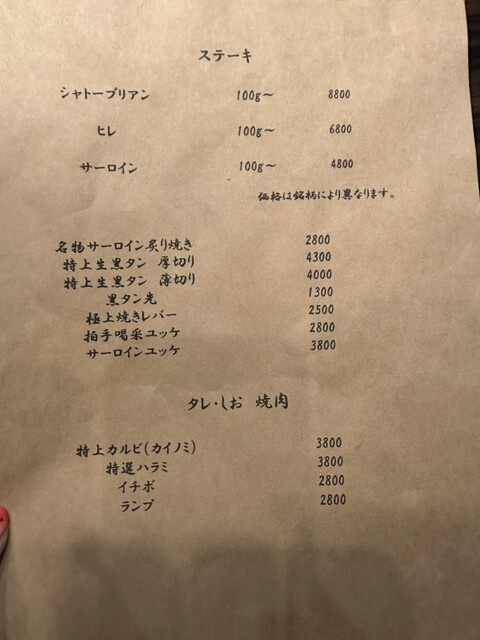 ステーキ
シャトーブリアン 100g〜 8800
ヒレ 100g〜 6800
サーロイン 100g〜 4800
価格は銘柄により異なります。
名物サーロイン炙り焼き 2800
特上生黒タン 厚切り 4300
特上生黒タン 薄切り 4000
黒タン先 1300
極上焼きレバー 2500
拍手喝采ユッケ 2800
サーロインユッケ 3800
タレ・しお 焼肉
特上カルビ(カイノミ) 3800
特選ハラミ 3800
イチボ 2800
ランプ 2800